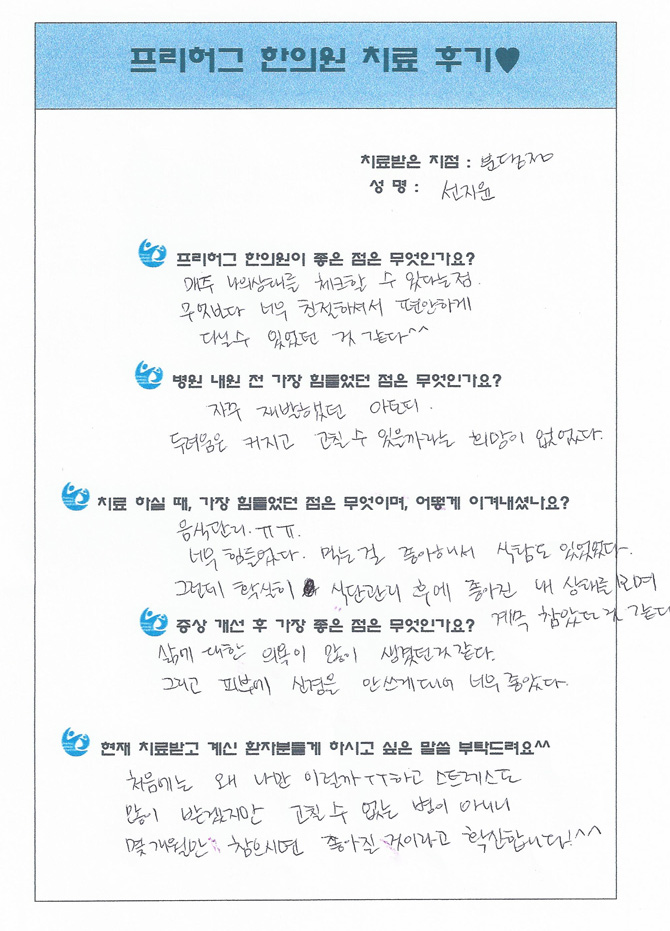 프리허그 한의원 치료 후기♥
치료받은 지점 : 분당점
성 명 : 선지윤
프리허그 한의원이 좋은 점은 무엇인가요?
매주 나의상태를 체크할 수 있다는점.
무엇보다 너무 친절하셔서 편안하게
다닐수 있었던 것 같다^^
병원 내원 전 가장 힘들었던 점은 무엇인가요?
자꾸 재발했던 아토피.
두려움은 커지고 고칠 수 있을까라는 희망이 없었다.
치료 하실 때, 가장 힘들었던 점은 무엇이며, 어떻게 이겨내셨나요?
음식관리.ㅠㅠ.
너무 힘들었다. 먹는걸 좋아해서 식탐도 있었었다.
그런데 확실히 식단관리 후에 좋아진 내 상태를 보며
계속 참았던 것 같다
증상 개선 후 가장 좋은 점은 무엇인가요?
삶에 대한 의욕이 많이 생겼던것같다.
그리고 피부에 신경을 안쓰게되어 너무 좋았다.
현재 치료받고 계신 환자분들게 하시고 싶은 말씀 부탁드려요^^
처음에는 왜 나만 이런까ㅜㅜ하고 스트레스도
많이 받겠지만 고칠 수 없는 병이 아니니
몇개월만 참으시면 좋아질 것이라고 확신합니다!^^